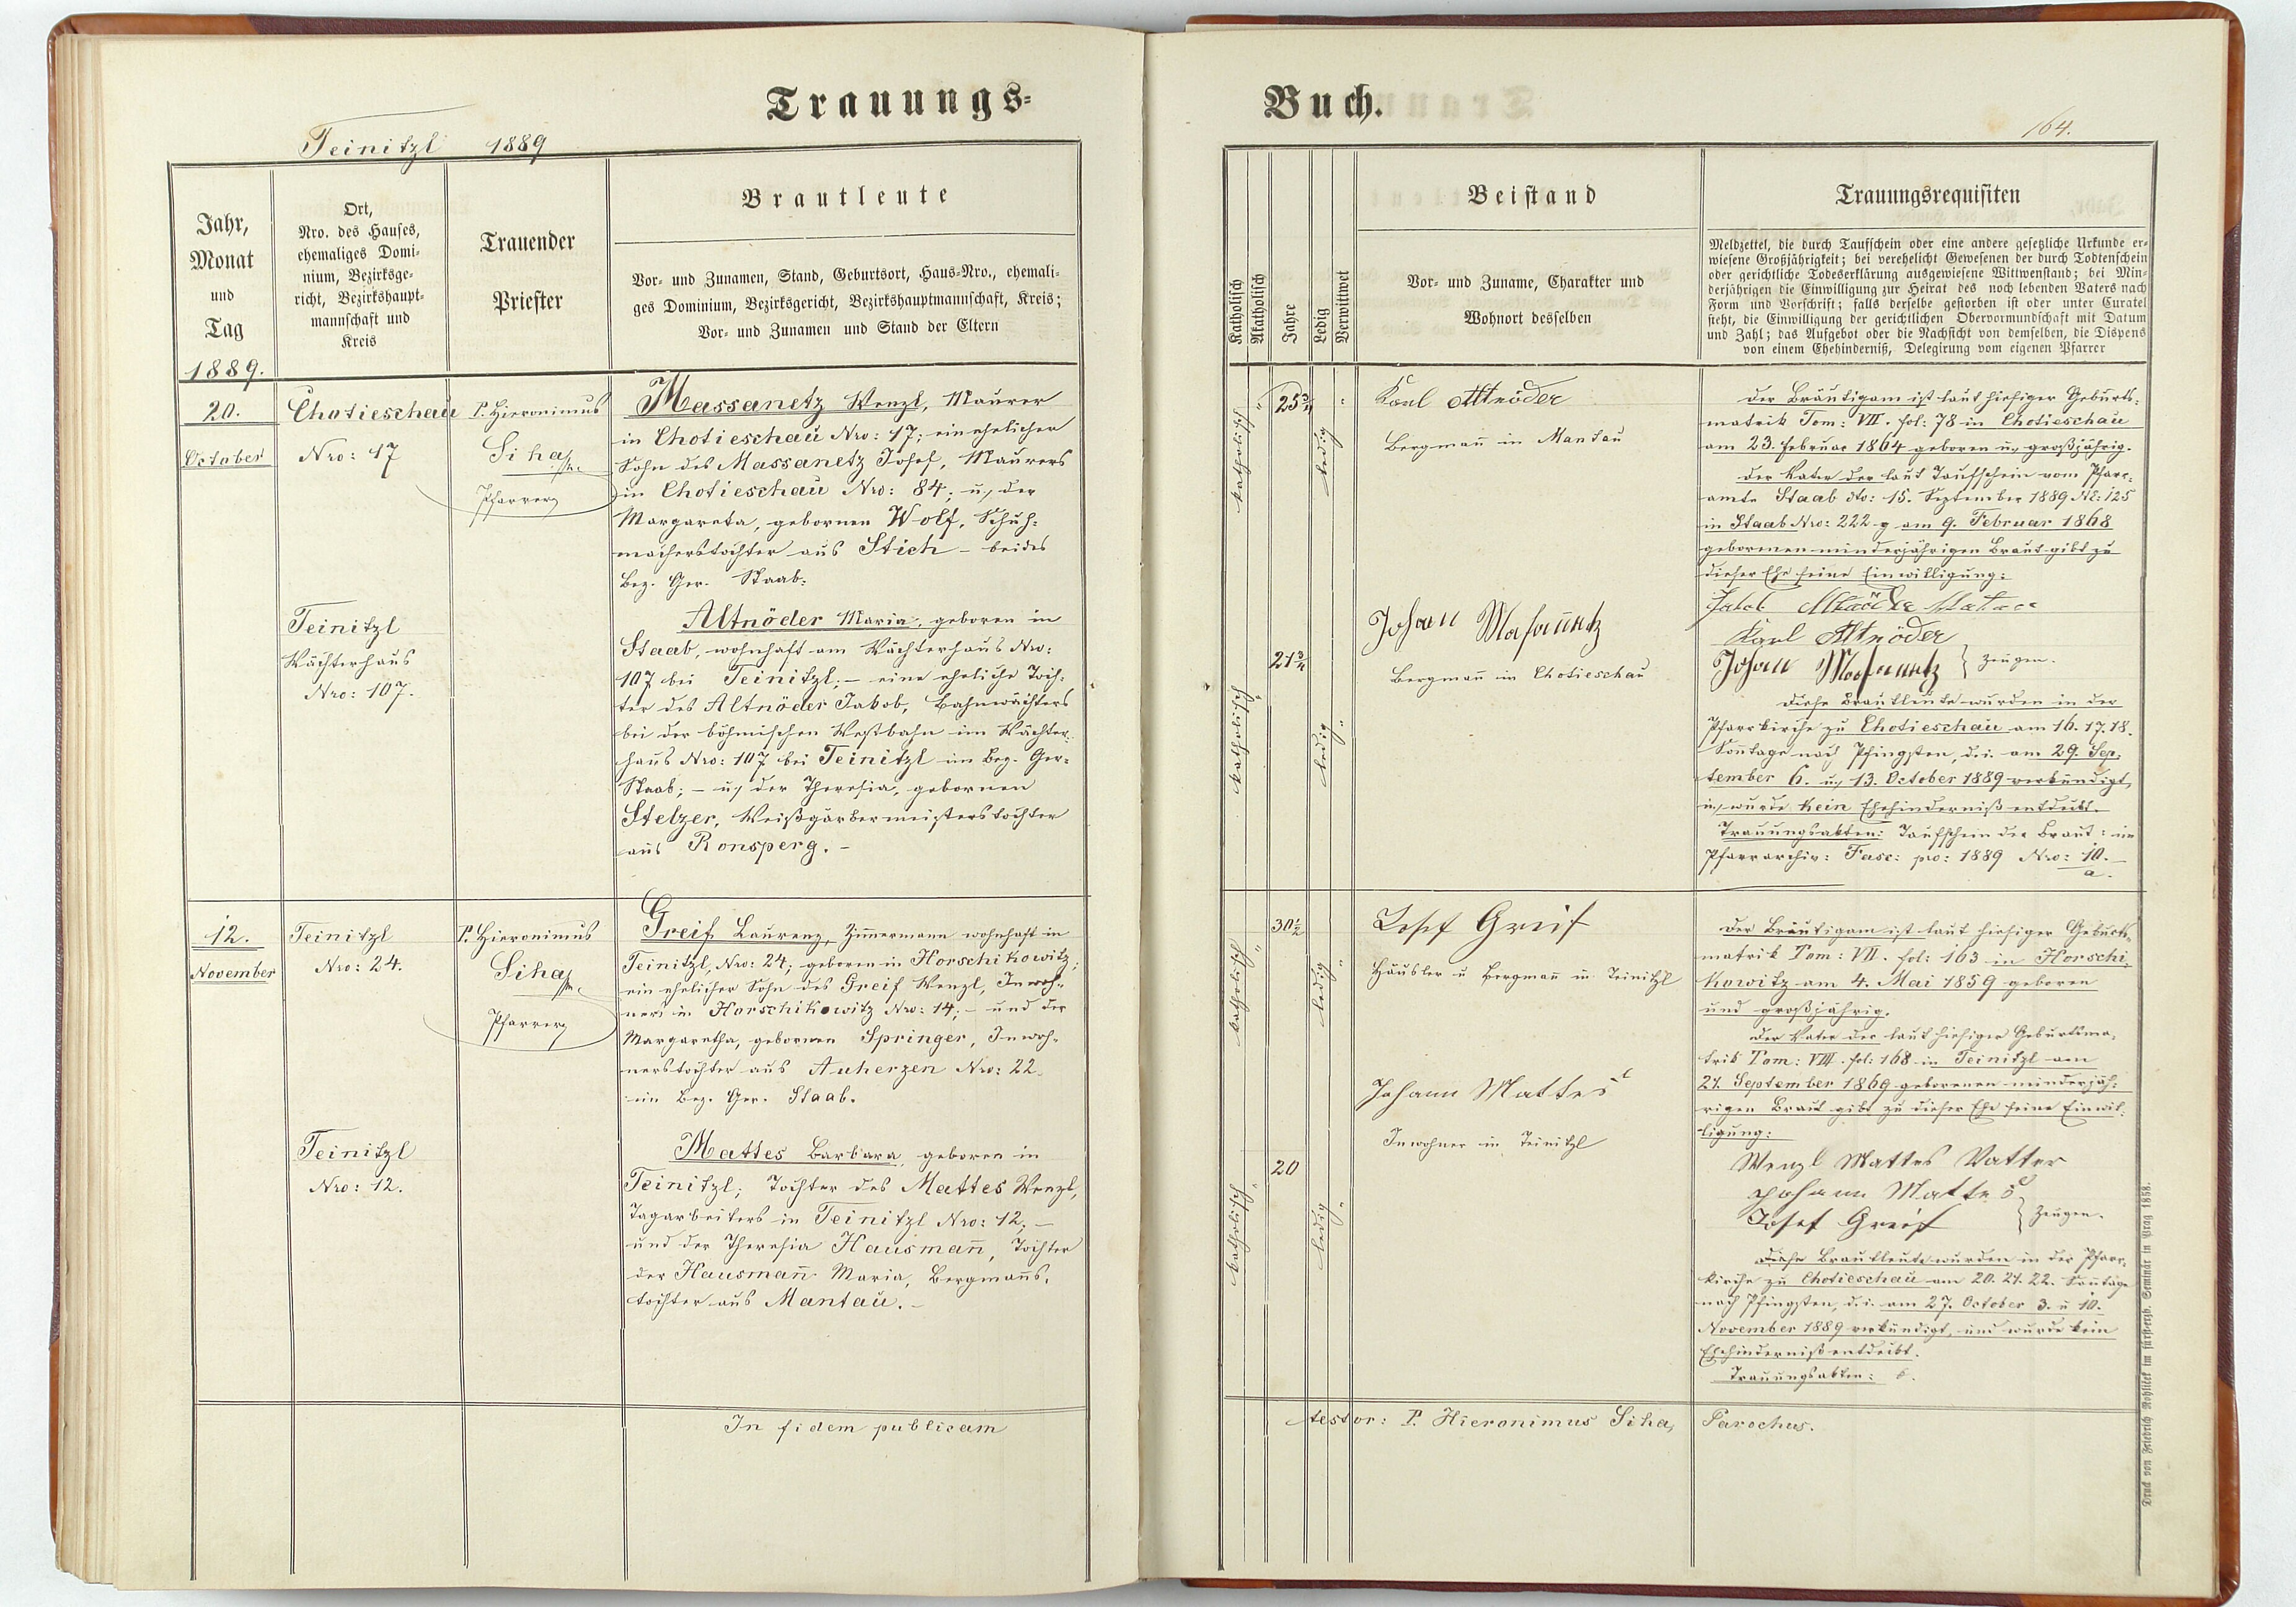 Trauungs=
Teinitzl 1889
Jahr,
Monat
und
Tag
1889.
Ort,
Nro. des Hauses,
ehemaliges Domi-
nium, Bezirksge-
richt, Bezirkshaupt-
mannschaft und
Kreis
Trauender
Priester
Brautleute
Vor- und Zunamen, Stand, Geburtsort, Haus-Nro., ehemali-
ges Dominium, Bezirksgericht, Bezirkshauptmannschaft, Kreis;
Vor- und Zunamen und Stand der Eltern
20.
October
Chotieschau
Nro: 17
P. Hieronimus
Siha
Pfarrer
Massanetz Wenzl, Maurer
in Chotieschau Nro: 17; ein ehelicher
Sohn des Massanetz Josef, Maurers
in Chotieschau Nro: 84; u. der
Margareta, gebornen Wolf, Schuh=
macherstochter aus Stich – beides
Bez. Ger. Staab:
Teinitzl
Wächterhaus
Nro: 107.
Altnöder Maria, geboren in
Staab, wohnhaft am Wächterhaus Nro:
107 bei Teinitzl; – eine eheliche Toch=
ter des Altnöder Jakob, Bahnwächters
bei der böhmischen Westbahn im Wächter=
haus Nro: 107 bei Teinitzl im Bez. Ger=
Staab; – u. der Theresia, gebornen
Stelzer, Weißgärbermeisterstochter
aus Ronsperg. –
12.
November
Teinitzl
Nro: 24.
P. Hieronimus
Siha
Pfarrer
Greif Laurenz, Zimmermann wohnhaft in
Teinitzl, Nro: 24; geboren in Horschikowitz;
ein ehelicher Sohn des Greif Wenzl, Inwoh=
ners in Horschikowitz Nro: 14; – und der
Margaretha, gebornen Springer, Inwoh=
nerstochter aus Auherzen Nro: 22
im Bez. Ger. Staab.
Teinitzl
Nro: 12.
Mattes Barbara, geboren in
Teinitzl; Tochter des Mattes Wenzl,
Tagarbeiters in Teinitzl Nro: 12; –
und der Theresia Hausmañ, Tochter
der Hausmañ Maria, Bergmañs=
tochter aus Mantau. –
In fidem publicam
Buch.
164.
Katholisch
Akatholisch
Jahre
Ledig
Verwittwet
Beistand
Vor- und Zuname, Charakter und
Wohnort desselben
Trauungsrequisiten
Meldzettel, die durch Taufschein oder eine andere gesetzliche Urkunde er-
wiesene Großjährigkeit; bei verehelicht Gewesenen der durch Todtenschein
oder gerichtliche Todeserklärung ausgewiesene Wittwenstand; bei Min-
derjährigen die Einwilligung zur Heirat des noch lebenden Vaters nach
Form und Vorschrift; falls derselbe gestorben ist oder unter Curatel
steht, die Einwilligung der gerichtlichen Obervormundschaft mit Datum
und Zahl; das Aufgebot oder die Nachsicht von demselben, die Dispens
von einem Ehehinderniß, Delegirung vom eigenen Pfarrer
katholisch
"
25 3/4
ledig
"
Karl Altnöder
Bergmañ in Mantau
katholisch
"
21 3/4
ledig
"
Johan Masanetz
Bergmañ in Chotieschau
Der Bräutigam ist laut hiesiger Geburts=
matrik Tom: VII. fol: 78 in Chotieschau
am 23. Februar 1864 geboren u. großjährig.
Der Vater der laut Taufschein vom Pfarr=
amte Staab dto: 15. September 1889 NE: 125
in Staab Nro: 222 am 9. Februar 1868
gebornen minderjährigen Braut gibt zu
dieser Ehe seine Einwilligung:
Jakob Altnöder Vater
Karl Altnöder
Johan Masanetz } Zeugen.
Diese Brautleute wurden in der
Pfarrkirche zu Chotieschau am 16. 17. 18.
Soñtage nach Pfingsten, d. i. am 29. Sep=
tember 6. u. 13. October 1889 verkündigt,
u. wurde kein Ehehinderniß entdeckt.
Trauungsakten: Taufschein der Braut: im
Pfarrarchiv: Fasc: pro: 1889 Nro: 10.
a.
katholisch
"
30 1/2
ledig
"
Josef Greif
Häusler u Bergmañ in Teinitzl
katholisch
"
20
ledig
"
Johann Mattes
Inwohner in Teinitzl
Der Bräutigam ist laut hiesiger Geburts=
matrik Tom: VII. fol: 163 in Horschi=
kowitz am 4. Mai 1859 geboren
und großjährig.
Der Vater der laut hiesiger Geburtsma=
trik Tom: VIII. fol: 168 in Teinitzl am
21. September 1869 geborenen minderjäh=
rigen Braut gibt zu dieser Ehe seine Einwil=
ligung:
Wenzl Mattes Vatter
Johann Mattes
Josef Greif } Zeugen.
Diese Brautleute wurden in der Pfarr=
kirche zu Chotieschau am 20. 21. 22. Soñtage
nach Pfingsten, d. i. am 27. October 3. u 10.
November 1889 verkündigt, und wurde kein
Ehehinderniß entdeckt.
Trauungsakten:
testor: P. Hieronimus Siha, Parochus.
Druck von Friedrich Rohliček im fürsterzb. Seminär in Prag 1858.